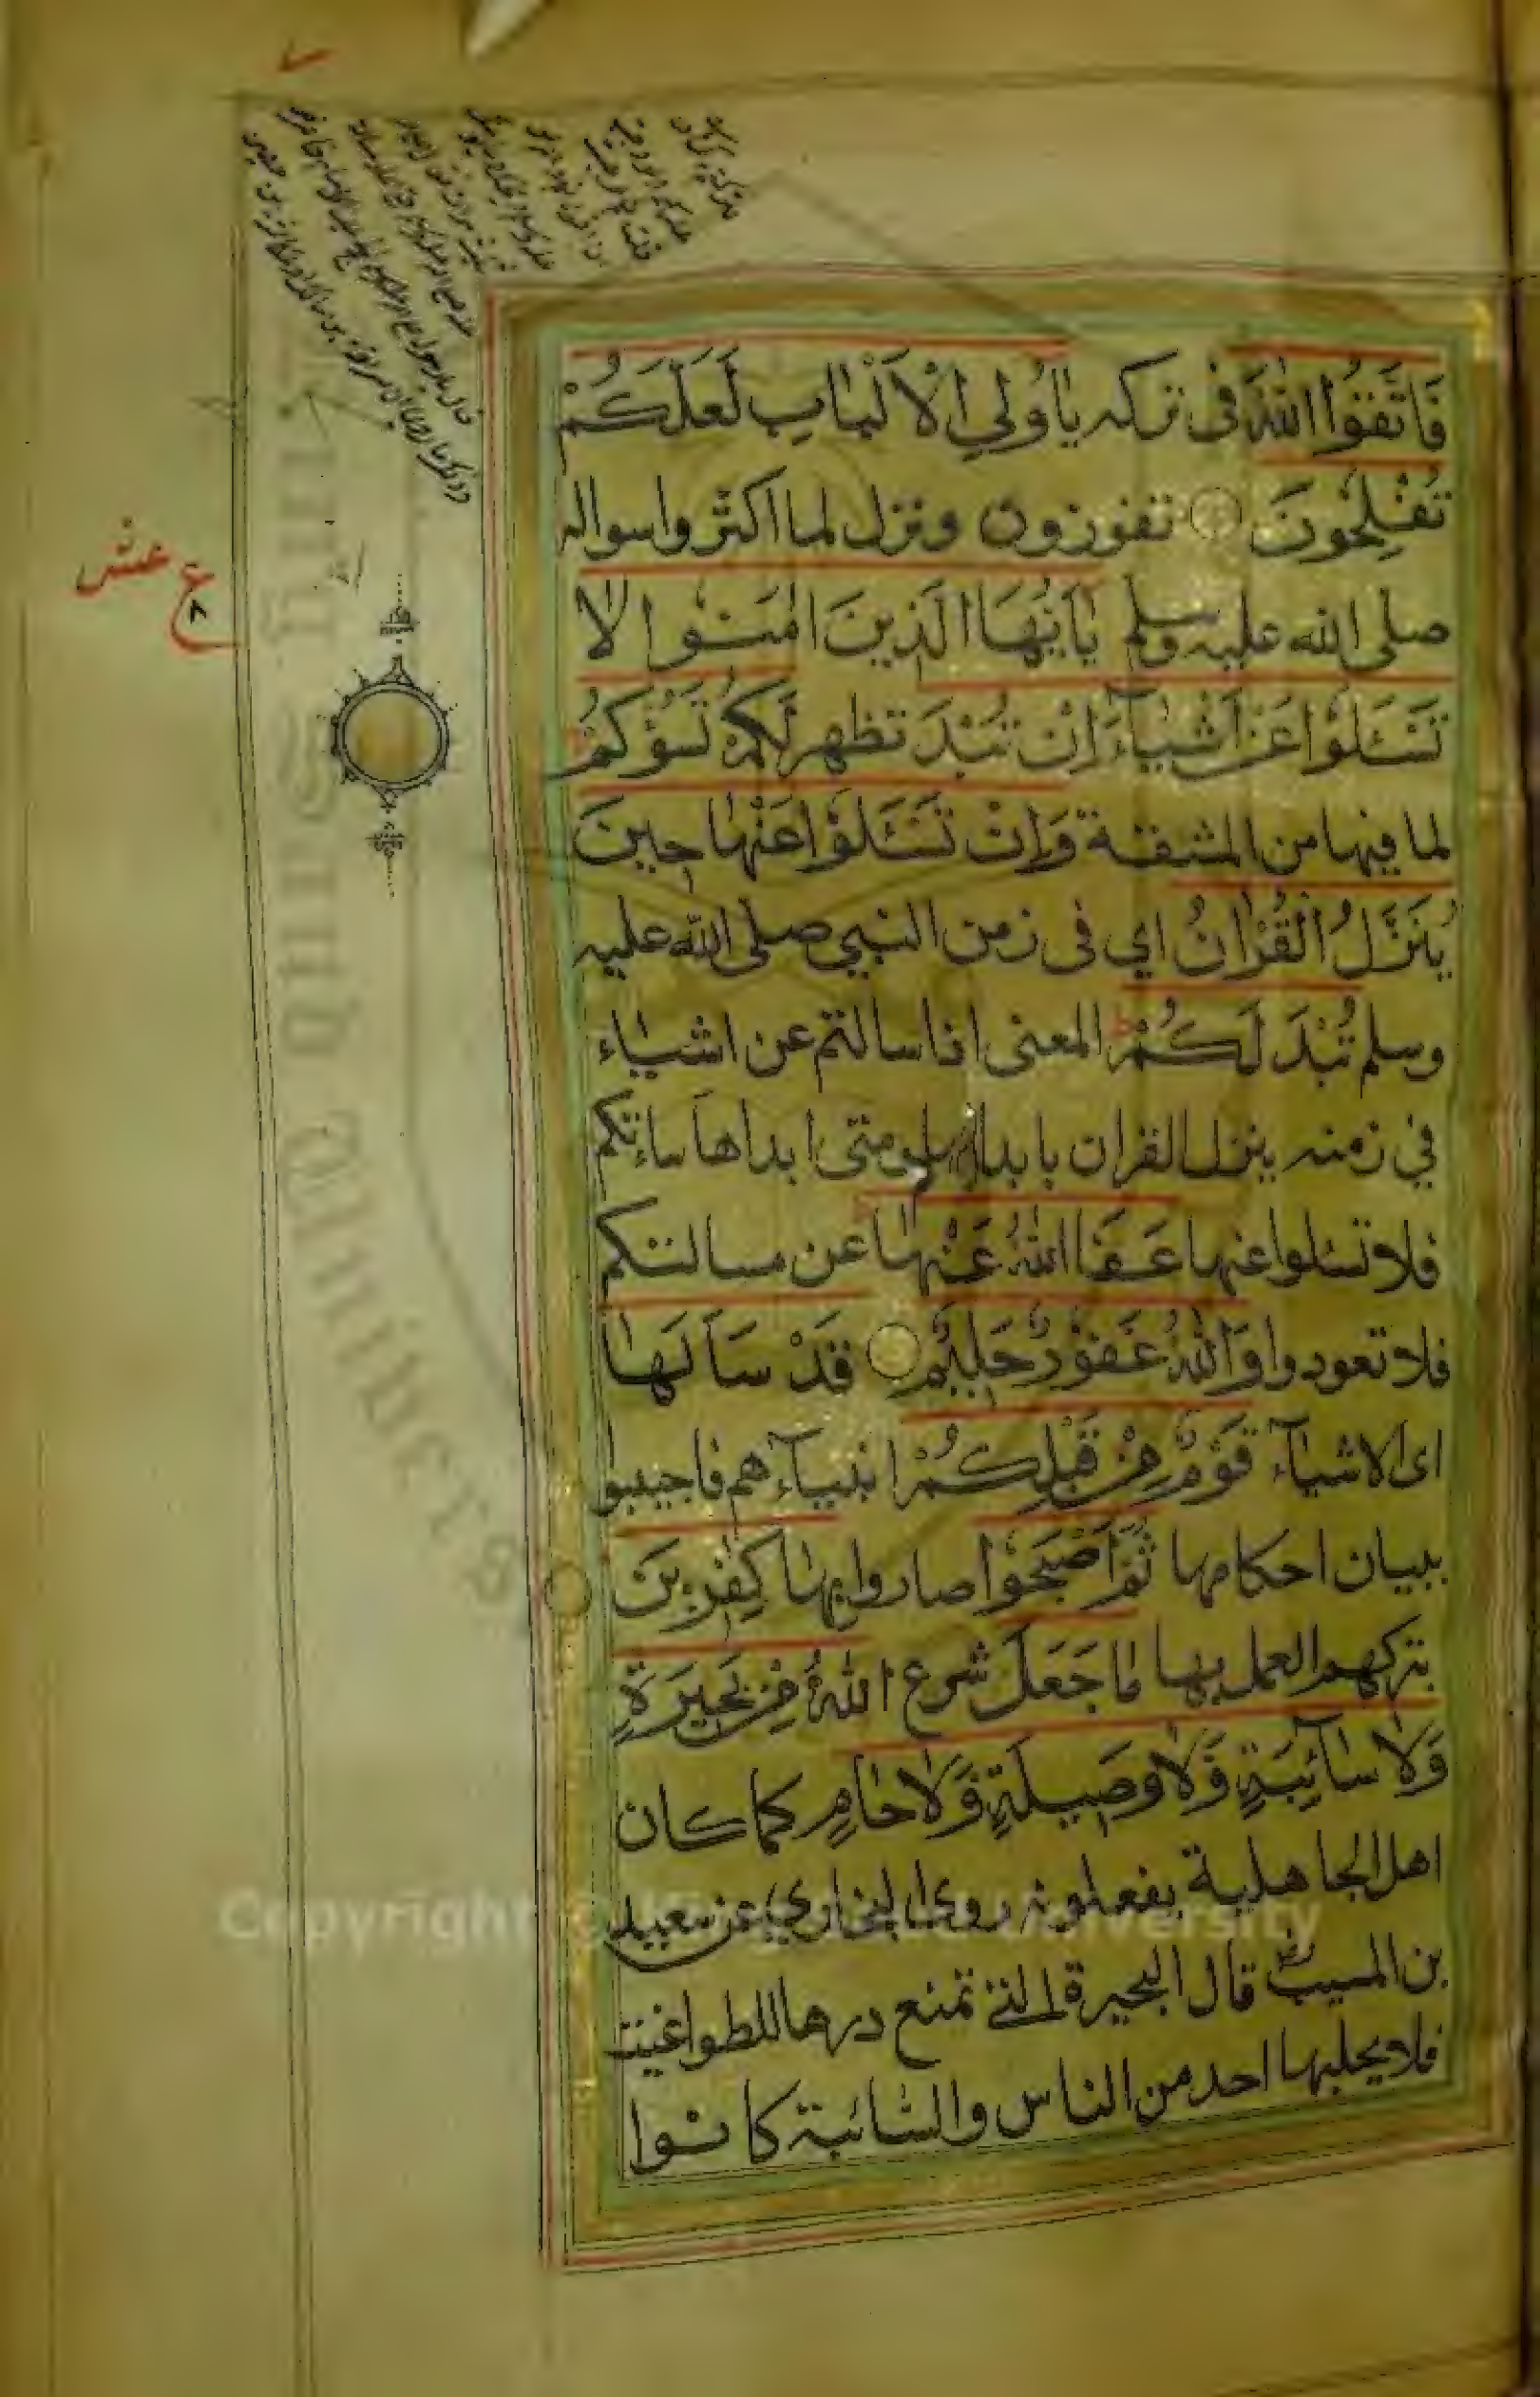 فَاتَّقُوا اللهَ فى تركه يا أُولِي الْأَلْبَابِ لَعَلَّكُمْ
تُفْلِحُونَ تفوزون ونزل لما اكثروا سواله
صلى الله عليه وسلم يٰاَيُّهَا الَّذِينَ اٰمَنُوا لَا
تَسْـَٔلُوا عَنْ اَشْيَاءَ اِنْ تُبْدَ تظهر لَكُمْ تَسُؤْكُمْ
لما فيها من المشقة وَاِنْ تَسْـَٔلُوا عَنْهَا حِينَ
يُنَزَّلُ الْقُرْاٰنُ اي فى زمن النبي صلى الله عليه
وسلم تُبْدَ لَكُمْ المعنى اذا سالتم عن اشياء
في زمنه ينزل القران بابدائها ومتى ابداها ساءتكم
فلا تسئلوا عنها عَفَا اللهُ عَنْهَا عن مسالتكم
فلا تعودوا وَاللهُ غَفُورٌ حَلِيمٌ قَدْ سَاَلَهَا
اى الاشياء قَوْمٌ مِنْ قَبْلِكُمْ انبياءهم فاجيبوا
ببيان احكامها ثُمَّ اَصْبَحُوا صاروا بِهَا كٰفِرِينَ
بتركهم العمل بها مَا جَعَلَ شرع اللهُ مِنْ بَحِيرَةٍ
وَلَا سَائِبَةٍ وَلَا وَصِيلَةٍ وَلَا حَامٍ كما كان
اهل الجاهلية يفعلونه روى البخاري عن سعيد
بن المسيب رض قال البحيرة التى تمنع درها للطواغيت
فلا يحلبها احد من الناس والسّائبة كانوا
ع عشر
٨
Copyright © King Saud University